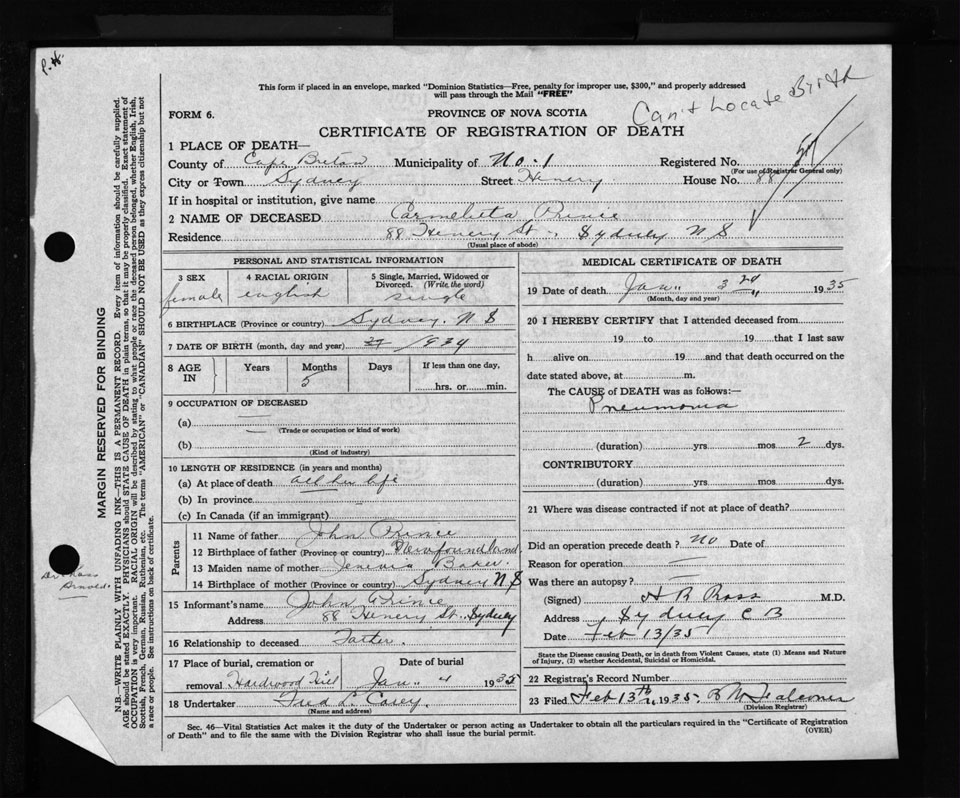 P.H.
This form if placed in an envelope, marked "Dominion Statistics—Free, penalty for improper use, $300," and properly addressed
will pass through the Mail "FREE"
Can't Locate Birth
FORM 6.
PROVINCE OF NOVA SCOTIA
CERTIFICATE OF REGISTRATION OF DEATH
1 PLACE OF DEATH—
County of Cape Breton Municipality of No. 1 Registered No.
(For use of Registrar General only)
City or Town Sydney Street Henery House No. 88
If in hospital or institution, give name
2 NAME OF DECEASED Carmelieta Prince
Residence 88 Henery St. Sydney N S
(Usual place of abode)
PERSONAL AND STATISTICAL INFORMATION
3 SEX female
4 RACIAL ORIGIN english
5 Single, Married, Widowed or Divorced. (Write the word) single
6 BIRTHPLACE (Province or country) Sydney. N S
7 DATE OF BIRTH (month, day and year) 1934
8 AGE IN Years Months 5 Days If less than one day, hrs. or min.
9 OCCUPATION OF DECEASED
(a)
(Trade or occupation or kind of work)
(b)
(Kind of industry)
10 LENGTH OF RESIDENCE (in years and months)
(a) At place of death all her life
(b) In province
(c) In Canada (if an immigrant)
Parents
11 Name of father John Prince
12 Birthplace of father (Province or country) Newfoundland
13 Maiden name of mother Jenevia Baker
14 Birthplace of mother (Province or country) Sydney N S
15 Informant's name John Prince
Address 88 Henery St. Sydney
16 Relationship to deceased Fatter.
17 Place of burial, cremation or removal Hardwood Hill
Date of burial Jan 4 1935
18 Undertaker Fred L. Casey.
(Name and address)
MEDICAL CERTIFICATE OF DEATH
19 Date of death Jan. 3 1935
(Month, day and year)
20 I HEREBY CERTIFY that I attended deceased from
19 to 19 that I last saw
h alive on 19 and that death occurred on the
date stated above, at m.
The CAUSE of DEATH was as follows:—
Pneumonia
(duration) yrs mos 2 dys.
CONTRIBUTORY
(duration) yrs mos dys.
21 Where was disease contracted if not at place of death?
Did an operation precede death? No Date of
Reason for operation —
Was there an autopsy? —
(Signed) H R Ross M.D.
Address Sydney C B
Date Feb 13/35
State the Disease causing Death, or in death from Violent Causes, state (1) Means and Nature
of Injury, (2) whether Accidental, Suicidal or Homicidal.
22 Registrar's Record Number
23 Filed Feb 13th 1935.
(Division Registrar)
Sec. 46—Vital Statistics Act makes it the duty of the Undertaker or person acting as Undertaker to obtain all the particulars required in the "Certificate of Registration
of Death" and to file the same with the Division Registrar who shall issue the burial permit.
(OVER)
MARGIN RESERVED FOR BINDING
N.B.—WRITE PLAINLY WITH UNFADING INK—THIS IS A PERMANENT RECORD. Every item of information should be carefully supplied.
AGE should be stated EXACTLY. PHYSICIANS should STATE CAUSE OF DEATH in plain terms, so that it may be properly classified. Exact statement of
OCCUPATION is very important. RACIAL ORIGIN will be described by stating to what people or race the deceased person belonged, whether English, Irish,
Scottish, French, German, Russian, Ruthenian, etc. The terms "AMERICAN" or "CANADIAN" SHOULD NOT BE USED as they express citizenship but not
a race or people. See instructions on back of certificate.